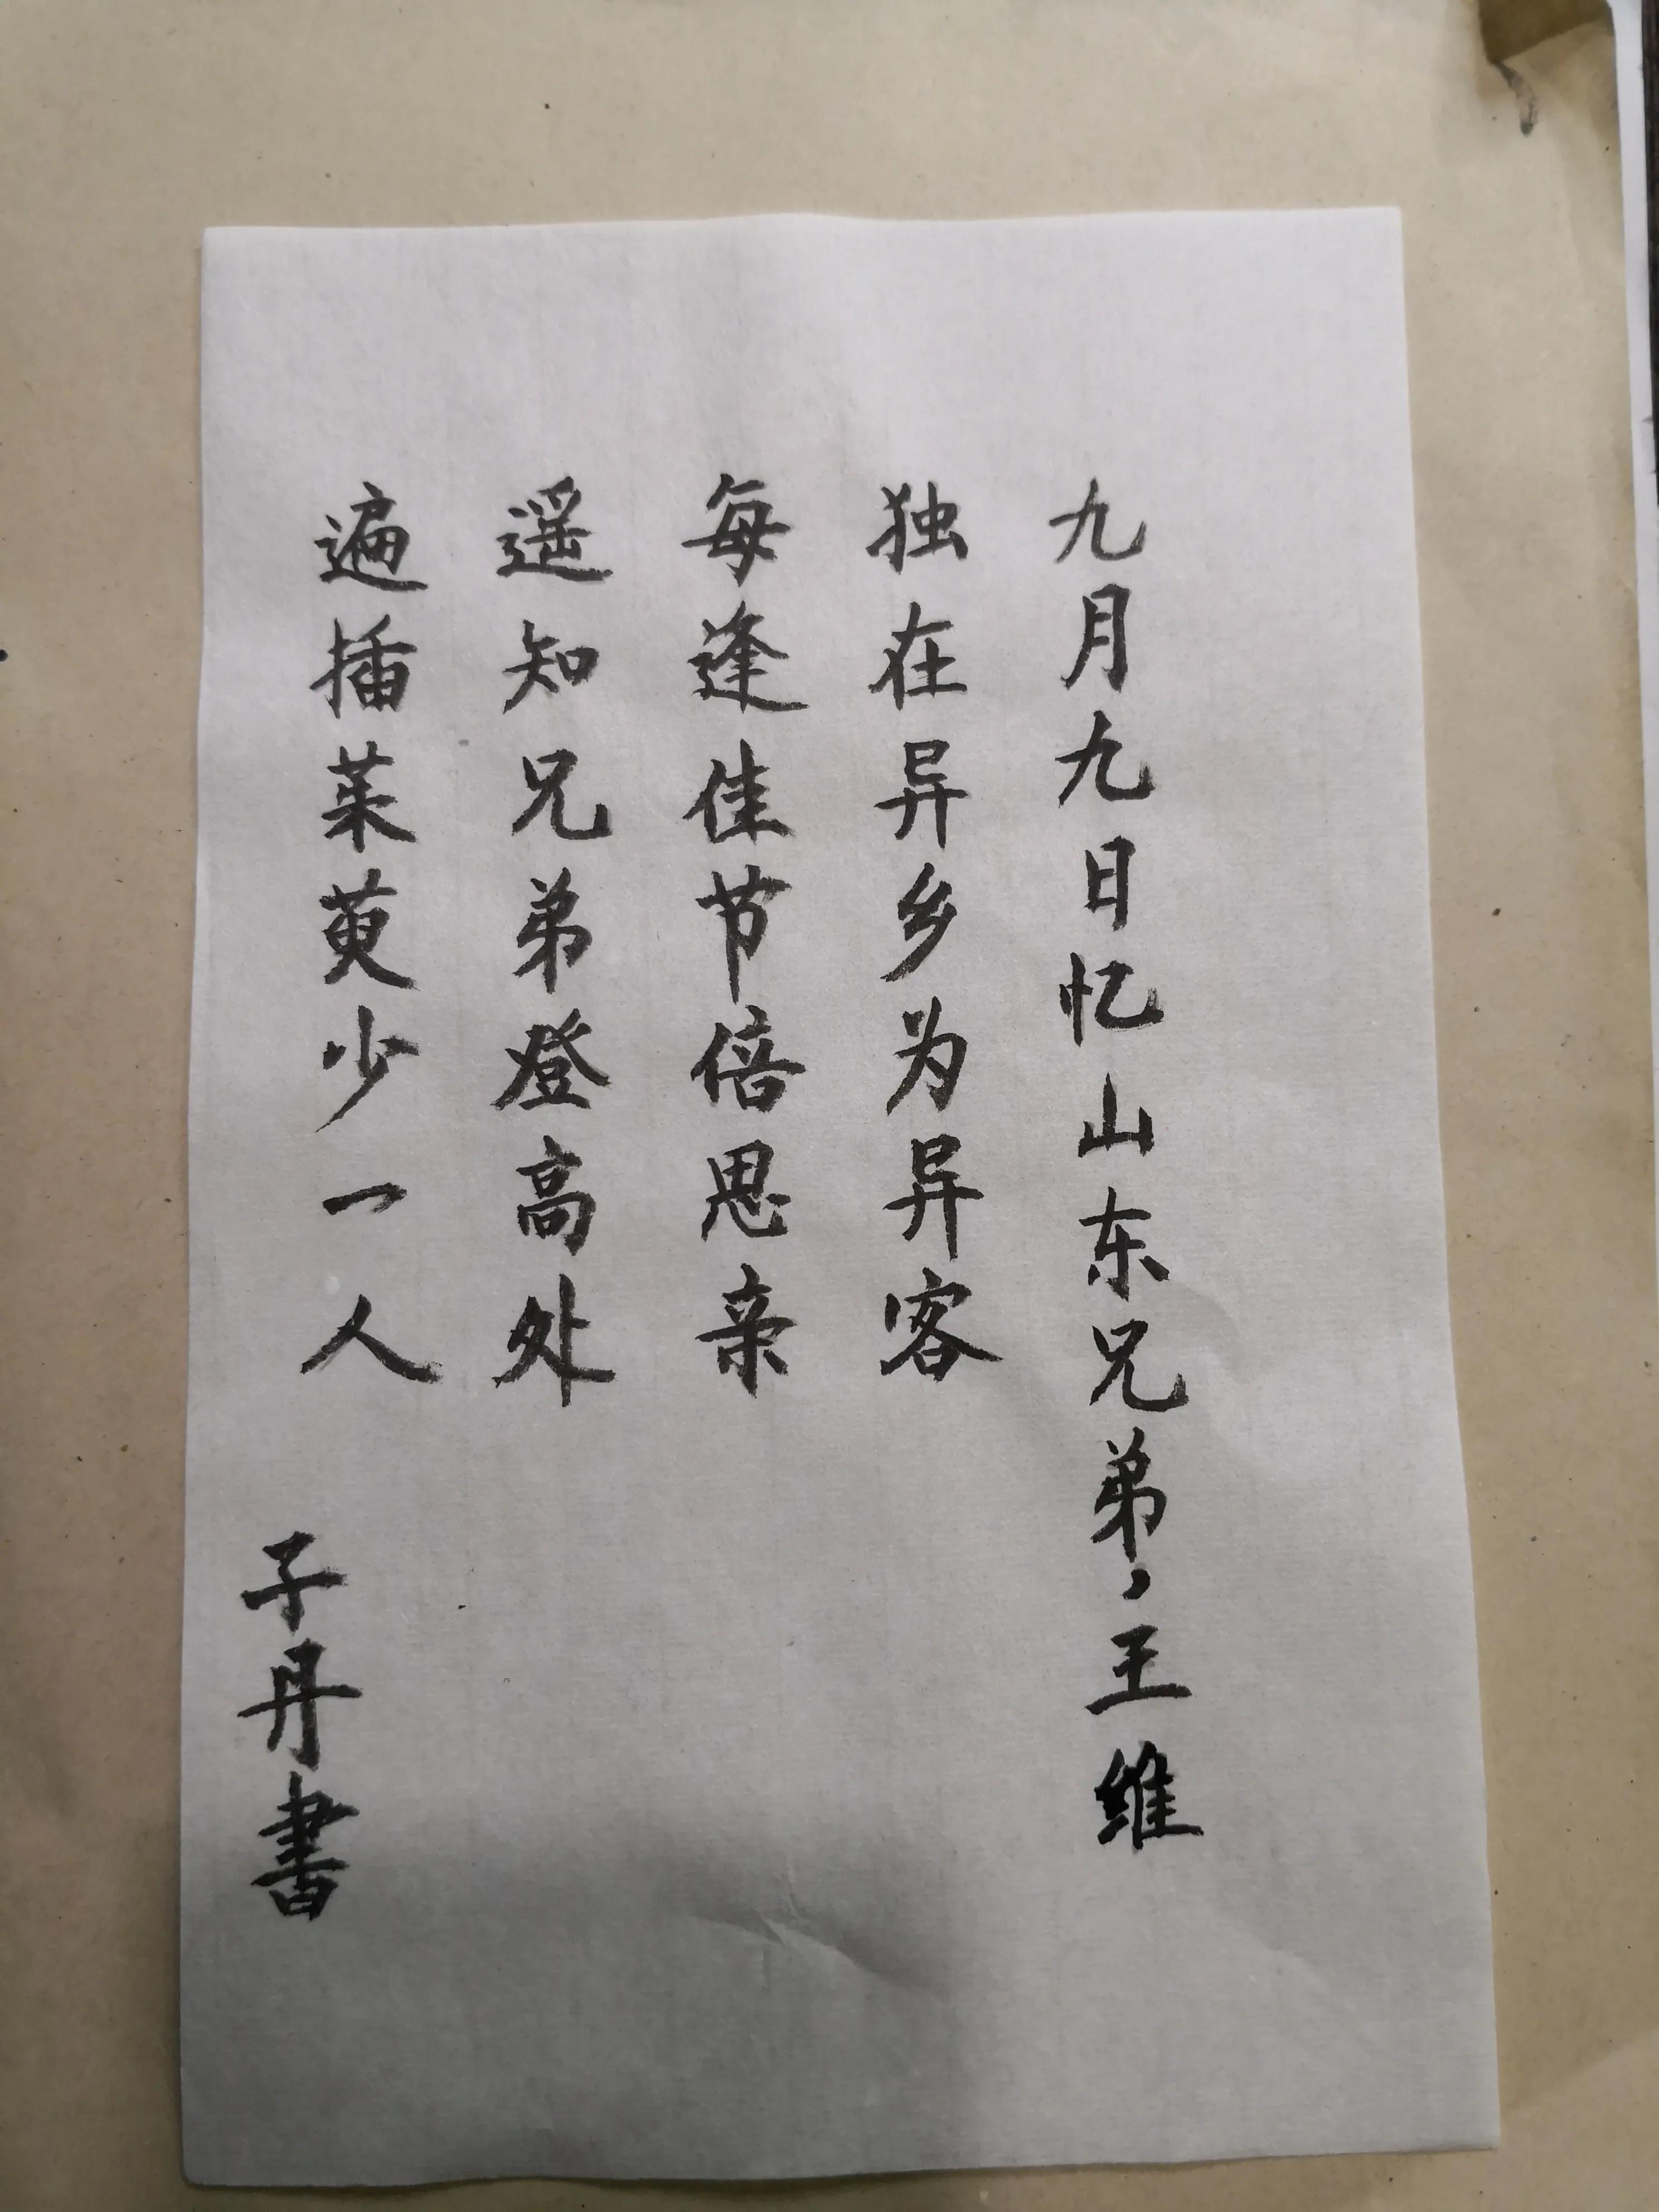 九月九日忆山东兄弟，王维
独在异乡为异客
每逢佳节倍思亲
遥知兄弟登高处
遍插茱萸少一人
子丹書